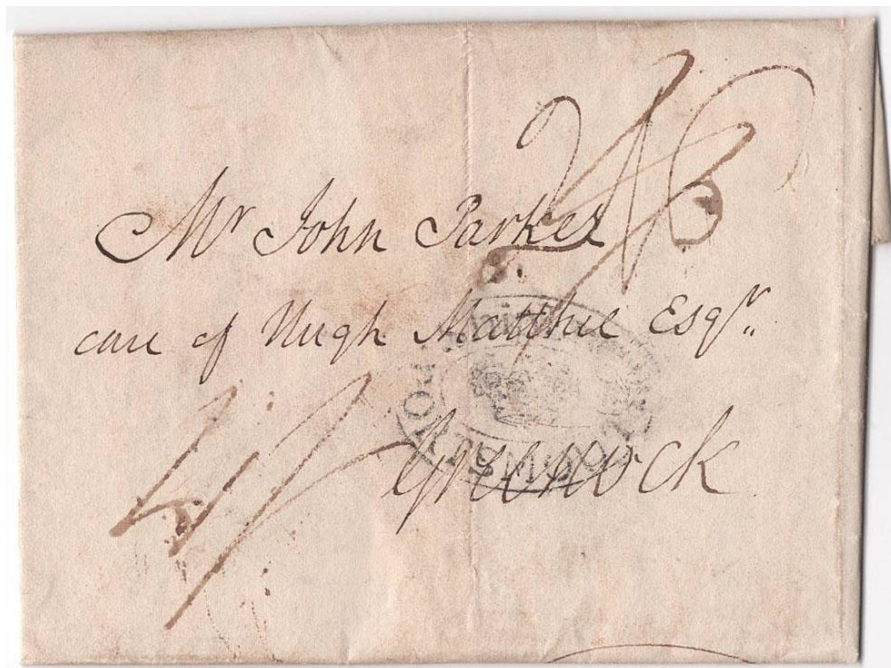 Mr John Parker
care of Hugh Matthie Esqr.
Greenock